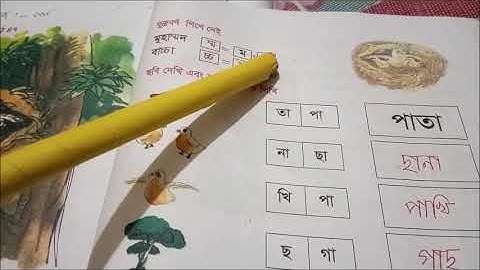 যুক্তবর্ণ শিখে নেই
মুহাম্মদ ম্ম = ম
বাচ্চা চ্চ =
ছবি দেখি এবং
তা পা পাতা
না ছা ছানা
খি পা পাখি
ছ গা গাছ